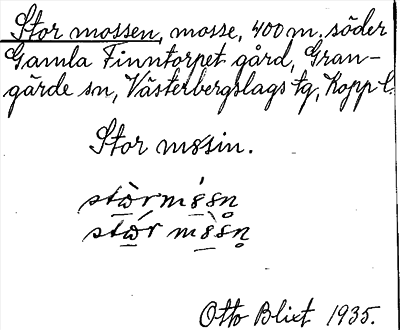 Stor mossen, mosse, 400 m. söder
Gamla Finntorpet gård, Gran-
gärde sn, Västerbergslags tg, Kopp. l.
Stor m8sin.
Otto Blixt 1935.